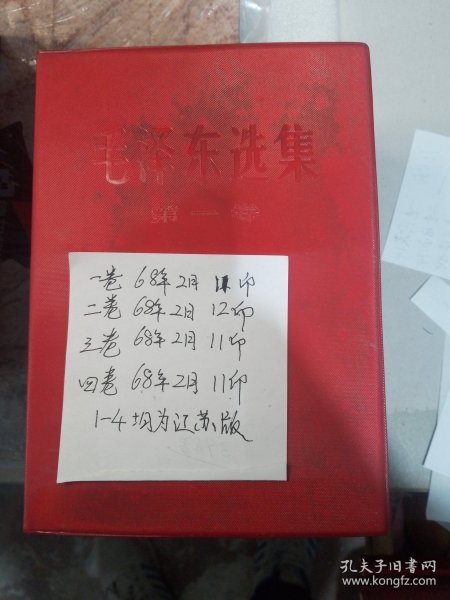 毛泽东选集
第一卷
一卷 68年2月 11印
二卷 68年2月 12印
三卷 68年2月 11印
四卷 68年2月 11印
1-4均为江苏版
孔夫子旧书网
www.kongfz.com